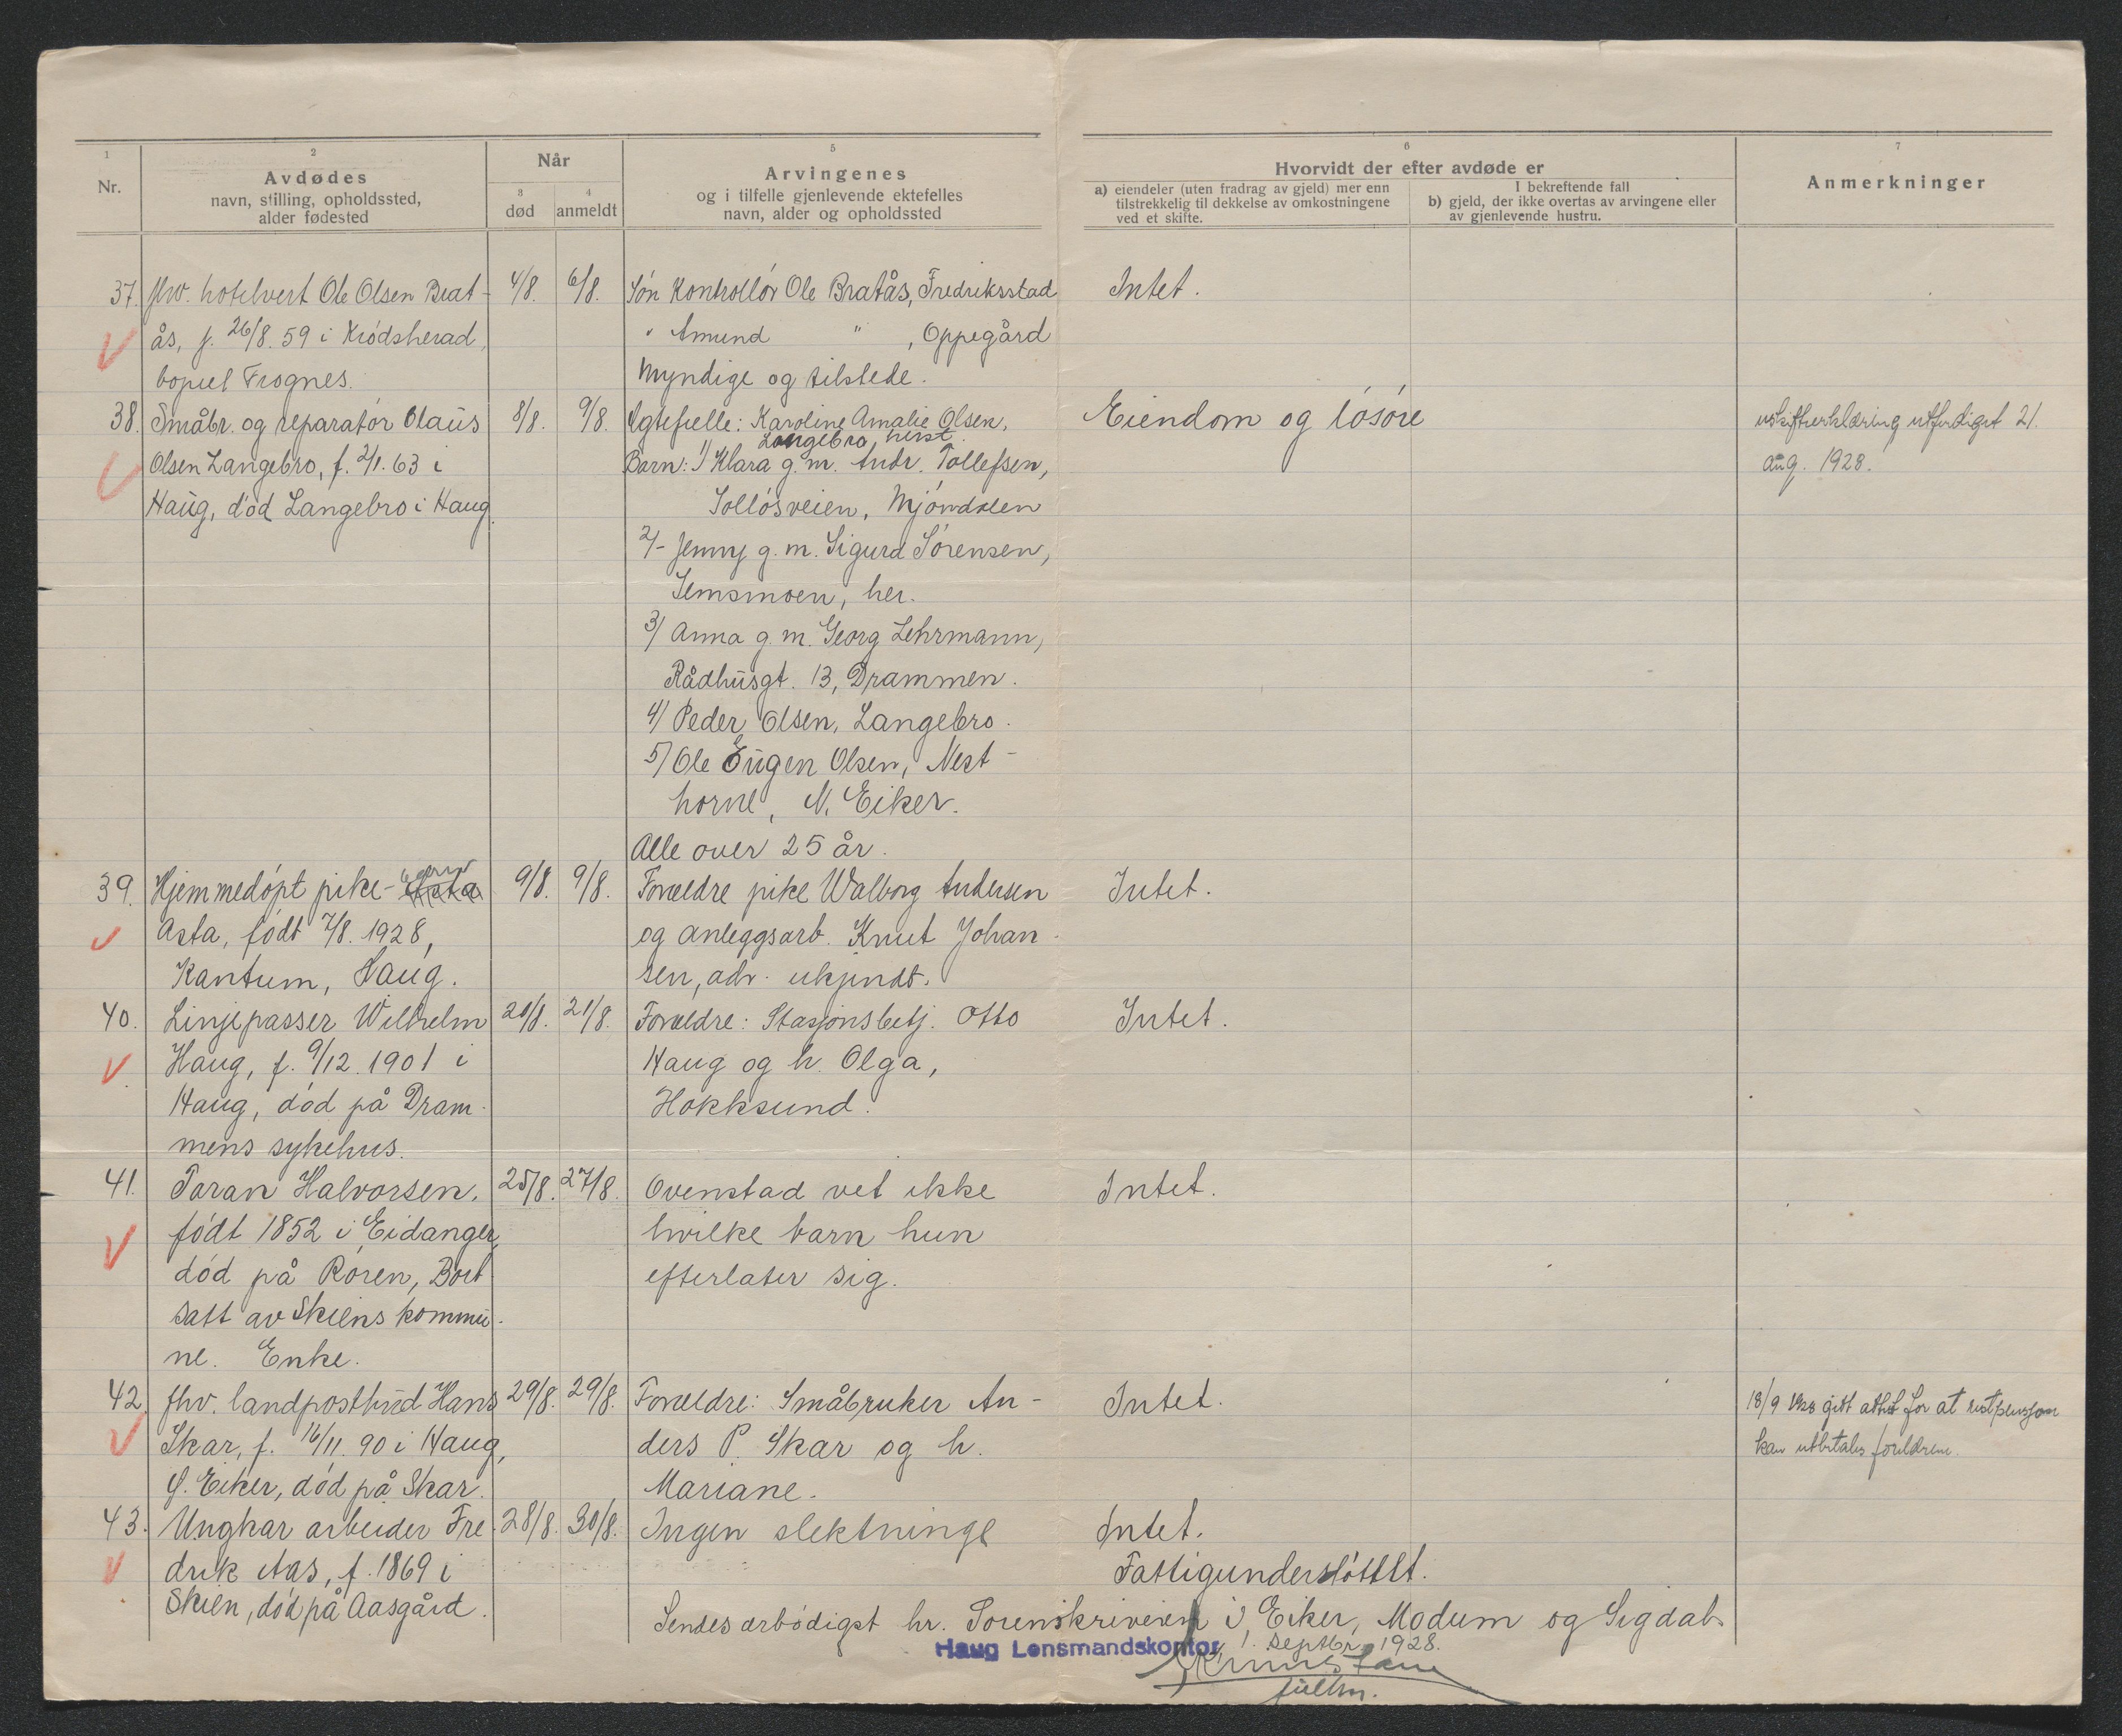 1
Nr.
2
Avdødes
navn, stilling, opholdssted,
alder fødested
Når
3
død
4
anmeldt
5
Arvingenes
og i tilfelle gjenlevende ektefelles
navn, alder og opholdssted
6
Hvorvidt der efter avdøde er
a) eiendeler (uten fradrag av gjeld) mer enn
tilstrekkelig til dekkelse av omkostningene
ved et skifte.
I bekreftende fall
b) gjeld, der ikke overtas av arvingene eller
av gjenlevende hustru.
7
Anmerkninger
37. fhv. hotelvert Ole Olsen Brat- 4/8. 6/8. Søn Kontrollør Ole Bratås, Fredriksstad Intet.
ås, f. 26/8. 59 i Krødsherad, " Amund " , Oppegård
bopæl Frognes. Myndige og tilstede.
38. Småbr. og reparatør Olaus 8/8. 9/8. Egtefælle: Karoline Amalie Olsen, Eiendom og løsøre
Langebro, herst.
Olsen Langebro, f. 2/1. 63 i Barn: 1/ Klara g. m. Andr. Tollefsen,
Haug, død Langebro i Haug. Solløsveien, Mjøndalen
2/- Jenny g. m. Sigurd Sørensen,
Semsmoen, her.
3/ Anna g. m. Georg Lehrmann,
Rådhusgt. 13, Drammen.
4/ Peder Olsen, Langebro.
5/ Ole Eugen Olsen, Nest-
horne, N. Eiker.
Alle over 25 år.
utfærdiget 21.
aug. 1928.
39. Hjemmedøpt pike - Asta 9/8. 9/8. Forældre pike Walborg Andersen Intet.
Asta, født 7/8. 1928, og anleggsarb. Knut Johan-
Kantum, Haug. sen, adr. ukjendt.
40. Linjepasser Wilhelm 20/8. 21/8. Forældre: Stasjonsbetj. Otto Intet.
Haug, f. 9/12. 1901 i Haug og h. Olga,
Haug, død på Dram- Hokksund.
mens sykehus.
41. Taran Halvorsen, 25/8. 27/8. Ovenstad vet ikke Intet.
født 1852 i Eidanger, hvilke barn hun
død på Røren, Bort efterlater sig.
satt av Skiens kommu-
ne. Enke.
42. fhv. landpostbud Hans 29/8. 29/8. Forældre: Småbruker An- Intet. 18/9 1928 gitt attest for at restpensjon
Skar, f. 16/11. 90 i Haug, ders P. Skar og h. kan utbetales foreldrene.
Ø. Eiker, død på Skar. Mariane.
43. Ungkar arbeider Fre- 28/8. 30/8. Ingen slektninge Intet.
drik Aas, f. 1869 i Fattigunderstøttet.
Skien, død på Aasgård.
Sendes ærbødigst hr. Sorenskriveren i Eiker, Modum og Sigdal.
Haug Lensmandskontor, 1. septbr. 1928.
fullm.